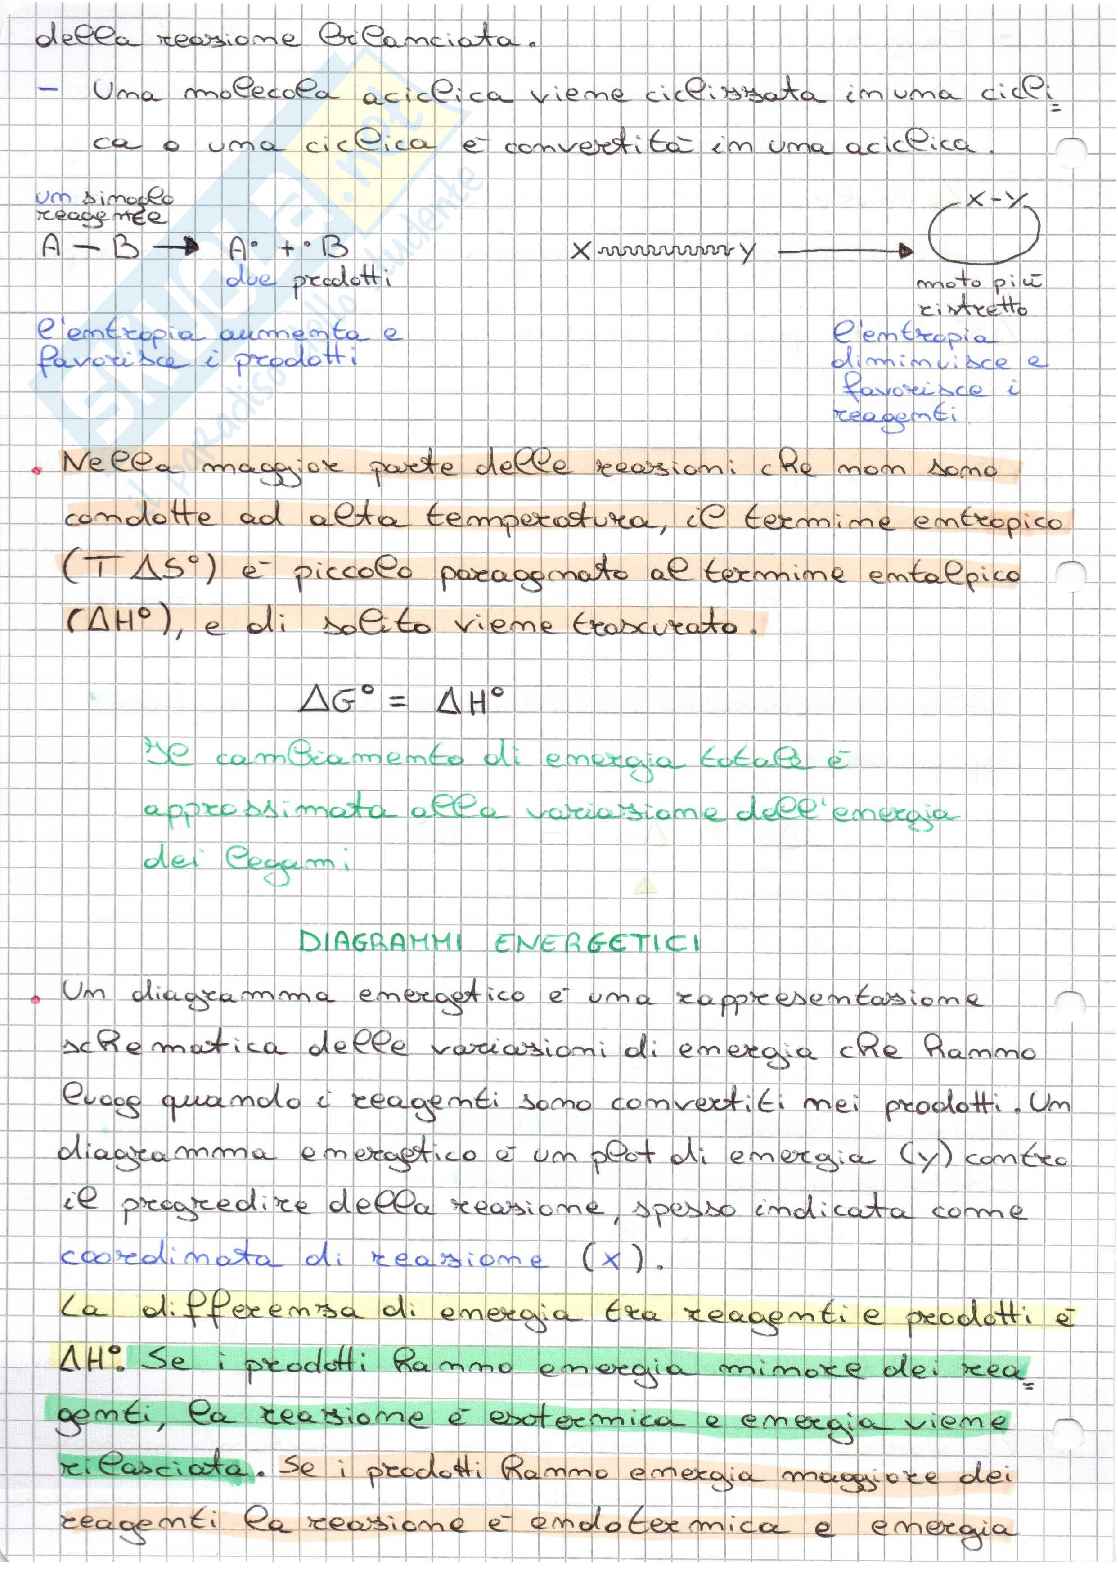 della reazione bilanciata.
- Una molecola aciclica viene ciclizzata in una cicli=
ca o una ciclica è convertità in una aciclica.
un singolo
reagente
A — B → A• + •B
due prodotti
l'entropia aumenta e
favorisce i prodotti
X Y → X-Y
moto più
ristretto
l'entropia
diminuisce e
favorisce i
reagenti
• Nella maggior parte delle reazioni che non sono
condotte ad alta temperatura, il termine entropico
(TΔS°) è piccolo paragonato al termine entalpico
(ΔH°), e di solito viene trascurato.
ΔG° = ΔH°
Il cambiamento di energia totale è
approssimata alla variazione dell'energia
dei legami
DIAGRAMMI ENERGETICI
• Un diagramma energetico è una rappresentazione
schematica delle variazioni di energia che hanno
luogo quando i reagenti sono convertiti nei prodotti. Un
diagramma energetico è un plot di energia (y) contro
il progredire della reazione, spesso indicata come
coordinata di reazione (x).
La differenza di energia tra reagenti e prodotti è
ΔH°. Se i prodotti hanno energia minore dei rea=
genti, la reazione è esotermica e energia viene
rilasciata. Se i prodotti hanno energia maggiore dei
reagenti la reazione è endotermica e energia
SKUOLA.net
il paradiso dello studente